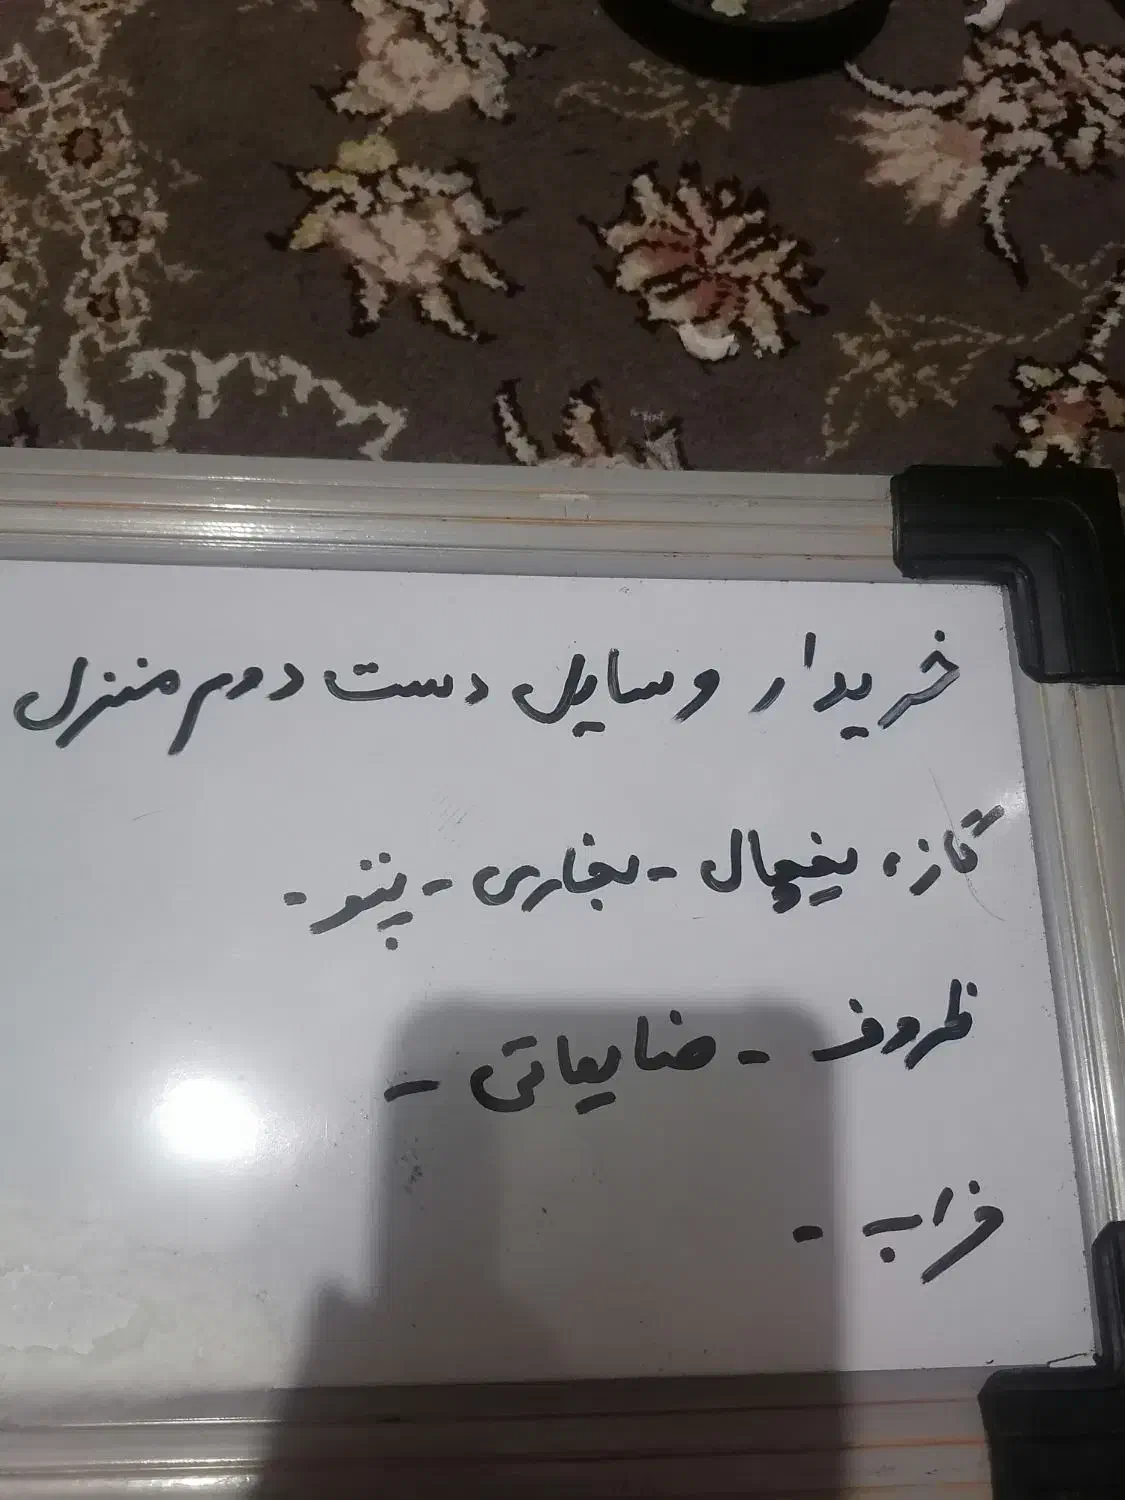 خریدار وسایل دست دوم منزل
گاز، یخچال - بخاری - پتو -
ظروف - ضایعاتی -
خراب -